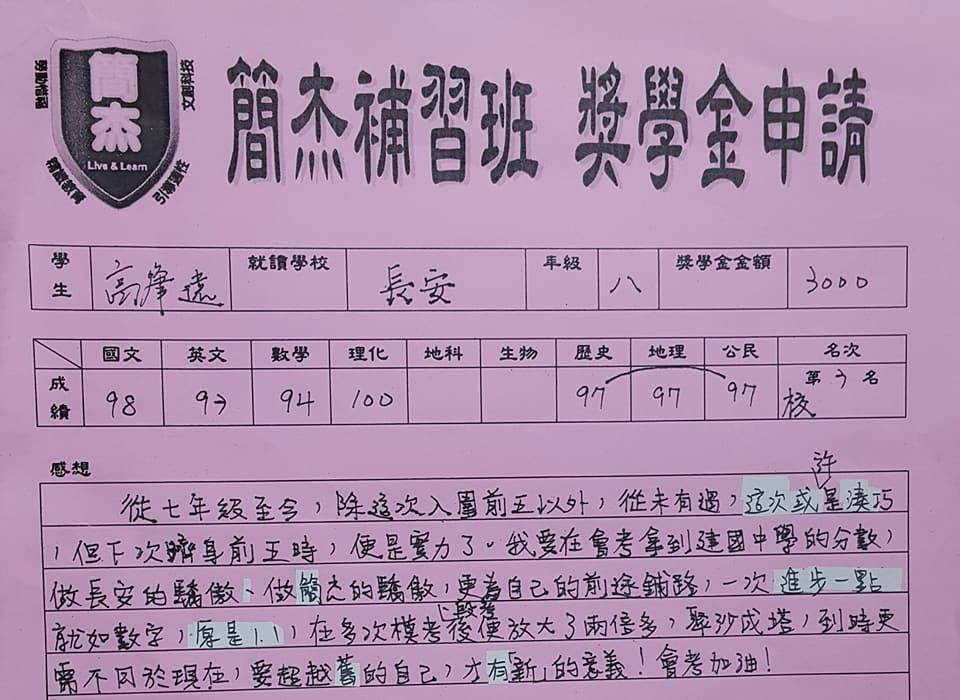 簡杰
Live & Learn
文創科技
精緻教育
引導理性
簡杰補習班 獎學金申請
學生 高肇遠 就讀學校 長安 年級 八 獎學金金額 3000
國文 英文 數學 理化 地科 生物 歷史 地理 公民 名次
成績 98 97 94 100 97 97 97 校第3名
感想
許
從七年級至今，除這次入圍前五以外，從未有過，這次或是湊巧
，但下次躋身前五時，便是實力了。我要在會考拿到建國中學的分數，
做長安的驕傲、做簡杰的驕傲，更為自己的前途鋪路，一次進步一點
段考
就如數字，原是1.1，在多次模考後便放大了兩倍多，聚沙成塔，到時更
需不同於現在，要超越舊的自己，才有「新」的意義！會考加油！